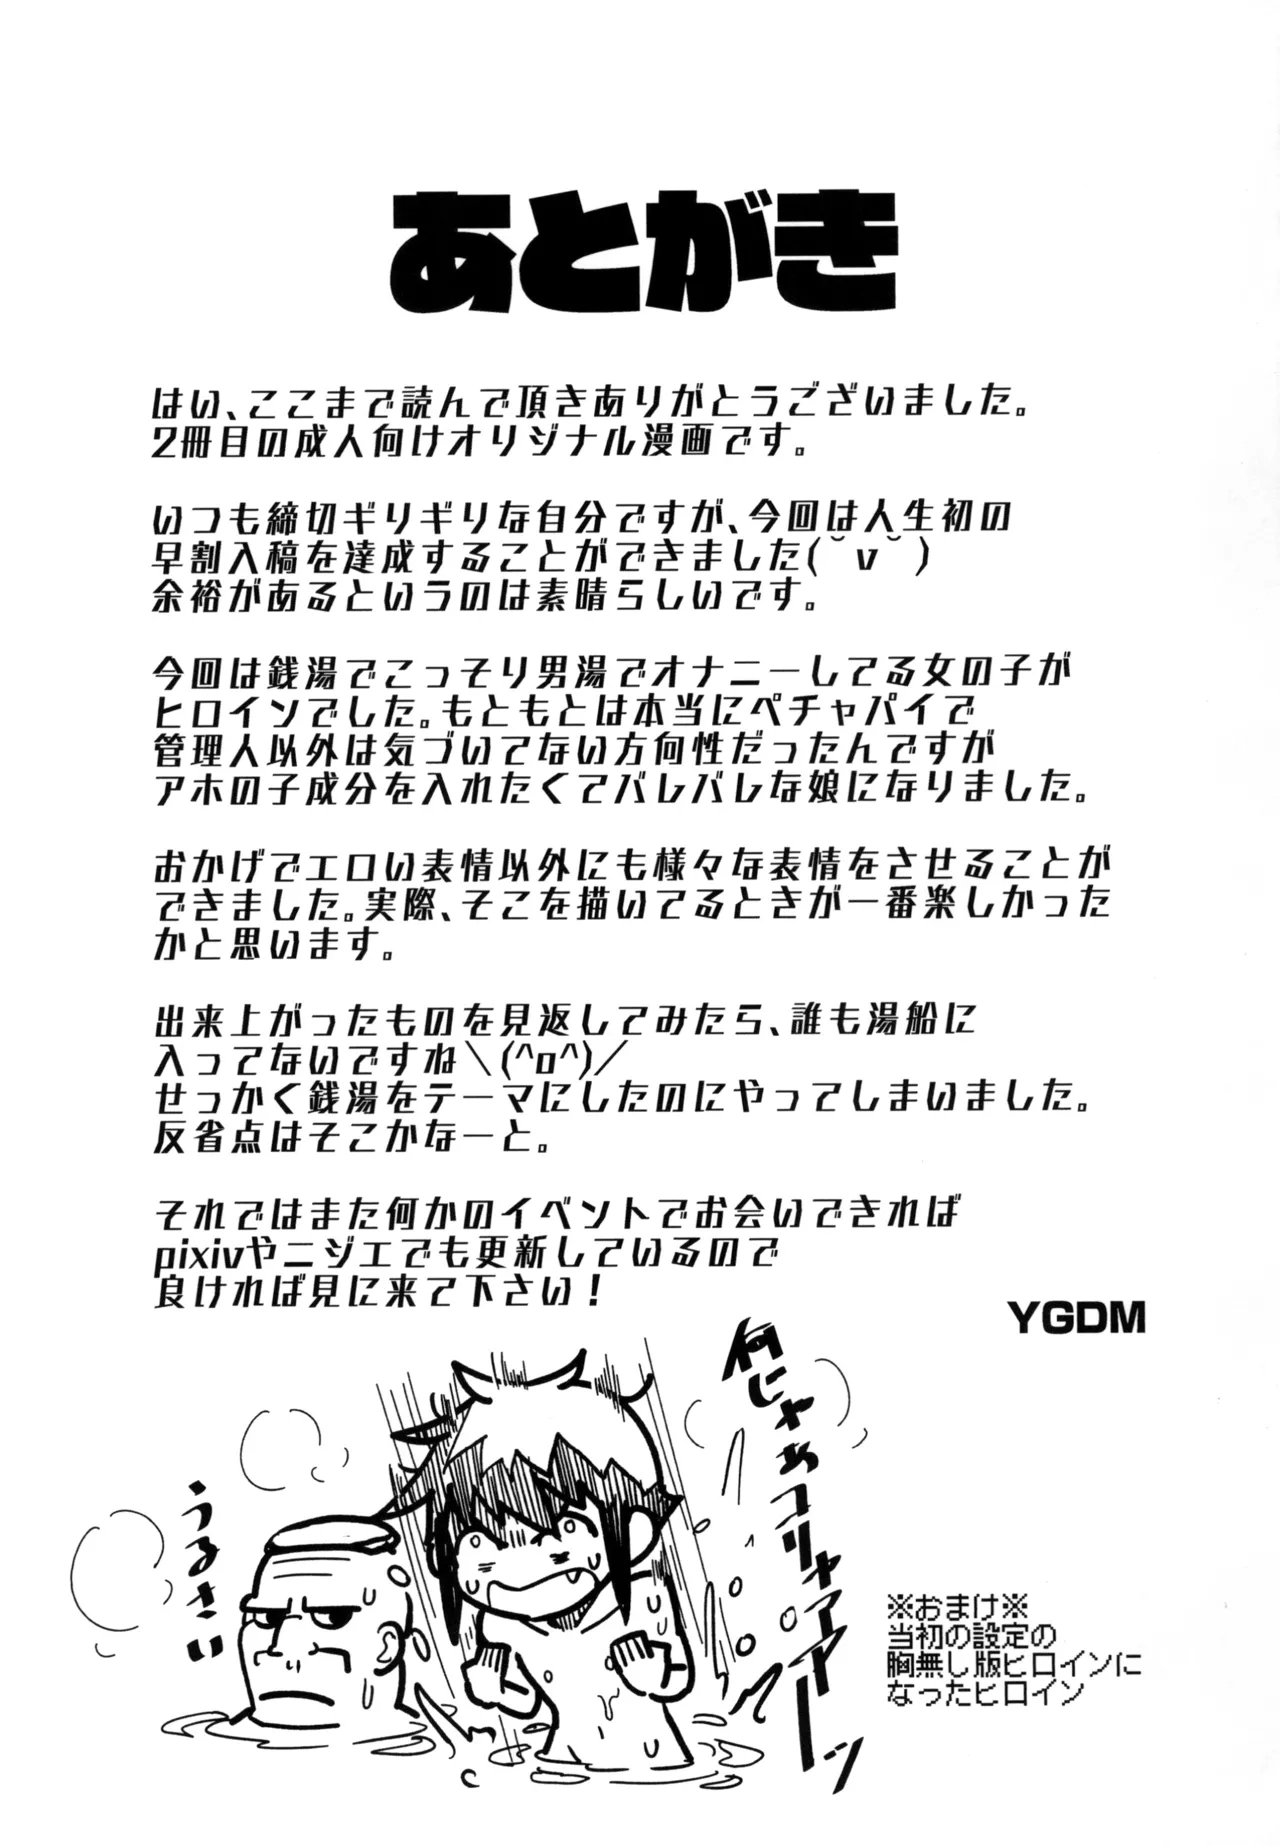 あとがき
はい、ここまで読んで頂きありがとうございました。
2冊目の成人向けオリジナル漫画です。
いつも締切ギリギリな自分ですが、今回は人生初の
早割入稿を達成することができました(˘ v ˘)
余裕があるというのは素晴らしいです。
今回は銭湯でこっそり男湯でオナニーしてる女の子が
ヒロインでした。もともとは本当にペチャパイで
管理人以外は気づいてない方向性だったんですが
アホの子成分を入れたくてバレバレな娘になりました。
おかげでエロい表情以外にも様々な表情をさせることが
できました。実際、そこを描いてるときが一番楽しかった
かと思います。
出来上がったものを見返してみたら、誰も湯船に
入ってないですね＼(^o^)／
せっかく銭湯をテーマにしたのにやってしまいました。
反省点はそこかなーと。
それではまた何かのイベントでお会いできれば
pixivやニジエでも更新しているので
良ければ見に来て下さい！
YGDM
何じゃあコリャアアアーーッ
うるさい
※おまけ※
当初の設定の
胸無し版ヒロインに
なったヒロイン